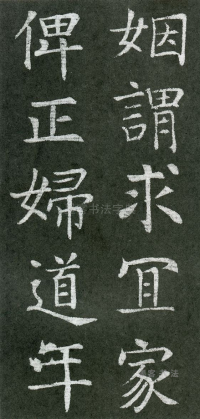 姻謂求宜家
俾正婦道年